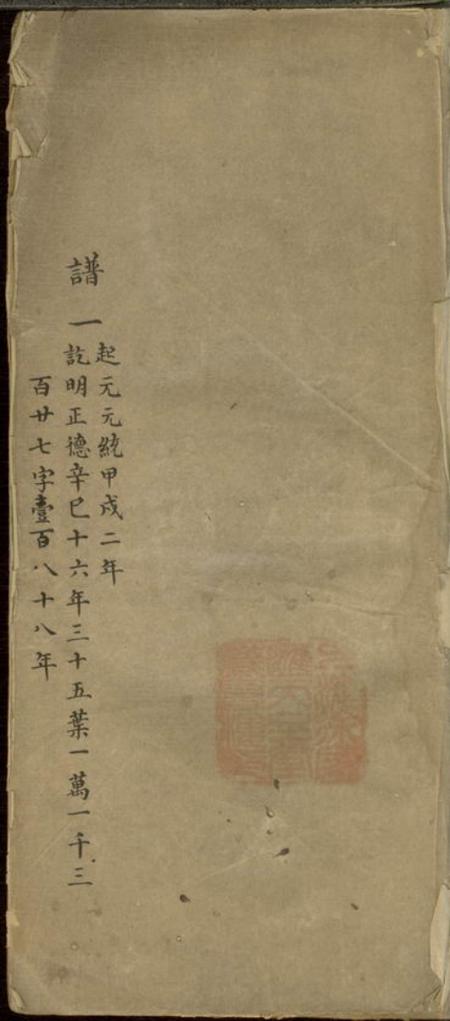 譜一
起元元統甲戌二年
訖明正德辛巳十六年三十五葉一萬一千三
百廿七字壹百八十八年